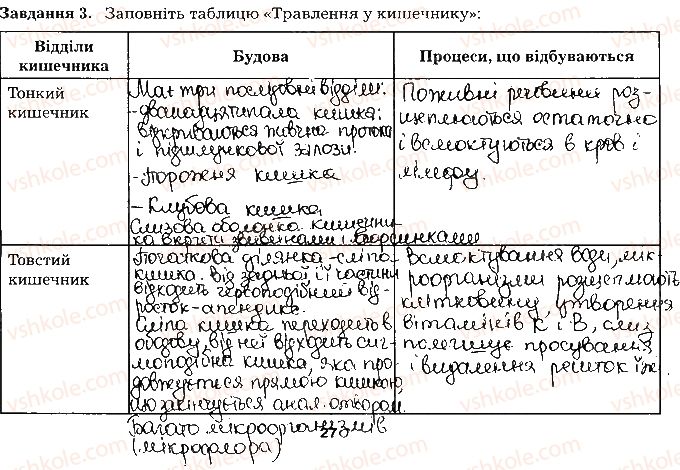 Завдання 3. Заповніть таблицю «Травлення у кишечнику»:
Відділи кишечника
Будова
Процеси, що відбуваються
Тонкий кишечник
Має три послідовні відділи:
-дванадцятипала кишка:
відкриваються жовчна протока
і підшлункової залози.
-Порожня кишка
-Клубова кишка.
Слизова оболонка кишечни-
ка вкрита звивинами і ворсинками
Поживні речовини роз-
щеплюються остаточно
і всмоктуються в кров і
лімфу.
Товстий кишечник
Початкова ділянка-сліпа
кишка. Від задньої її частини
відходить червоподібний від-
росток-апендикс.
Сліпа кишка переходить в
ободову, від неї відходить сиг-
моподібна кишка, яка про-
довжується прямою кишкою,
що закінчується анал. отвором.
Багато мікроорганізмів
(мікрофлора)
Всмоктування води, мік-
роорганізми розщеплюють
клітковину, утворення
вітамінів К і В, слиз
полегшує просування
і видалення решток їжі.
27
vshkole.com